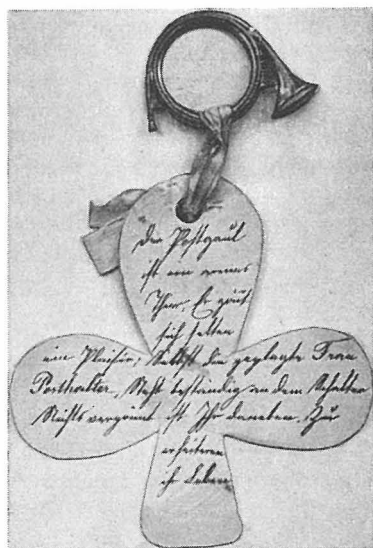 "Der Postgaul
ist ein armes
Thier. Er gönnt
sich selten
ein Plaisir; Selbst die geplagte Frau
Posthalter, Steht beständig an dem Schalter
Nichts vergönnt ist Ihr daneben,
erheiteren
ihr Leben